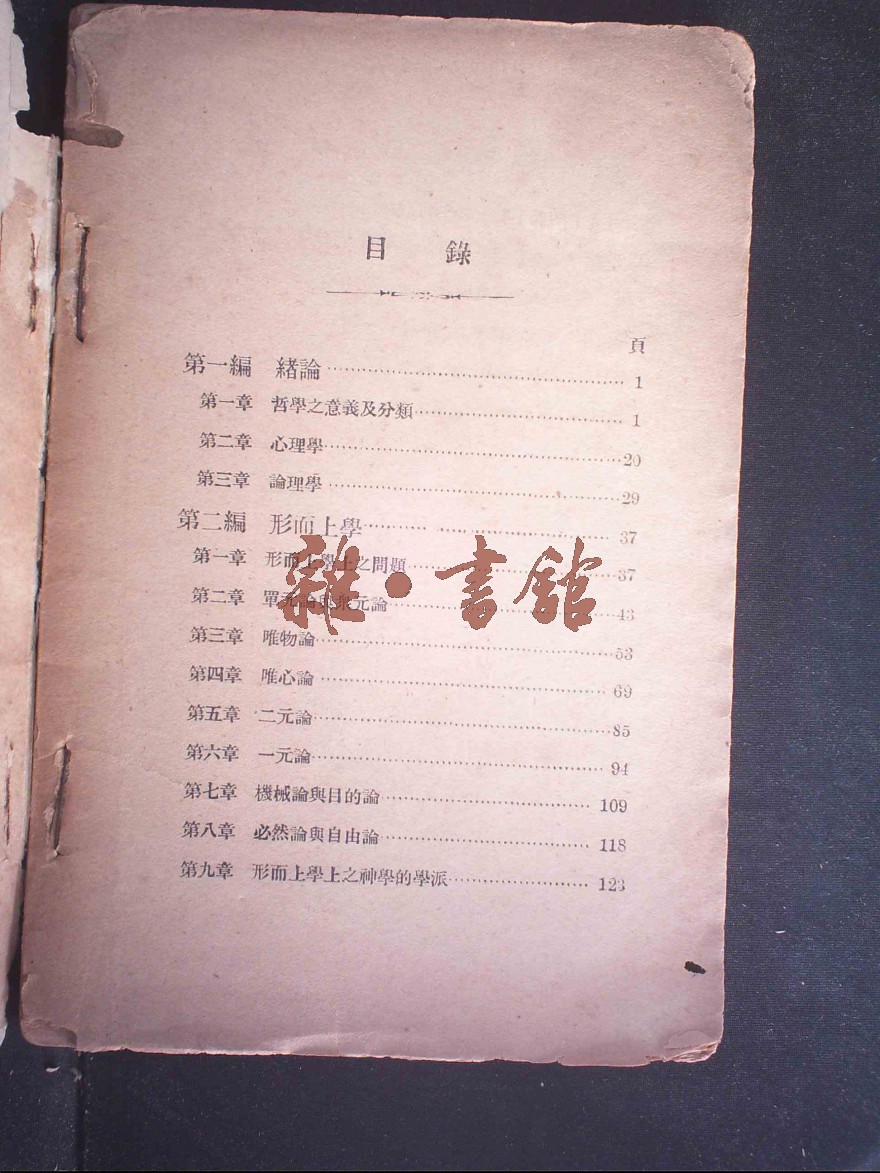 目錄
頁
第一編 緒論 1
第一章 哲學之意義及分類 1
第二章 心理學 20
第三章 論理學 29
第二編 形而上學 37
第一章 形而上學上之問題 37
第二章 單元論與衆元論 43
第三章 唯物論 53
第四章 唯心論 69
第五章 二元論 85
第六章 一元論 94
第七章 機械論與目的論 109
第八章 必然論與自由論 118
第九章 形而上學上之神學的學派 123
雜·書館